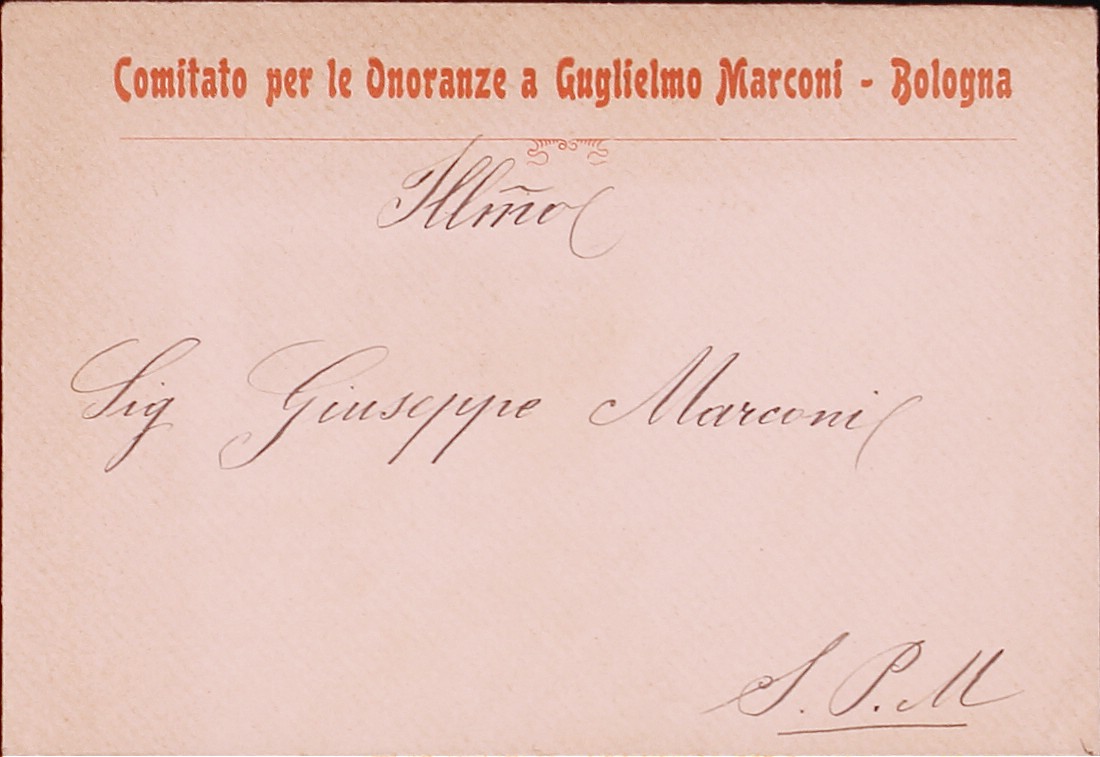 Comitato per le Onoranze a Guglielmo Marconi - Bologna
Illm̃o
Sig Giuseppe Marconi
S. P. M